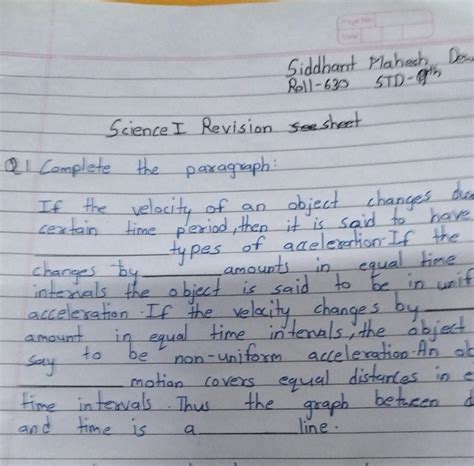 Page No.
Date
Siddhant Mahesh
Roll-630 STD-9th
Science I Revision sheet
Q1 Complete the paragraph:
If the velocity of an object changes
certain time period, then it is said to have
types of acceleration. If the
changes by amounts in equal time
intervals the object is said to be in unif
acceleration. If the velocity changes by
amount in equal time intervals, the object
say to be non-uniform acceleration. An ob
motion covers equal distances in e
time intervals. Thus the graph between d
and time is a line.